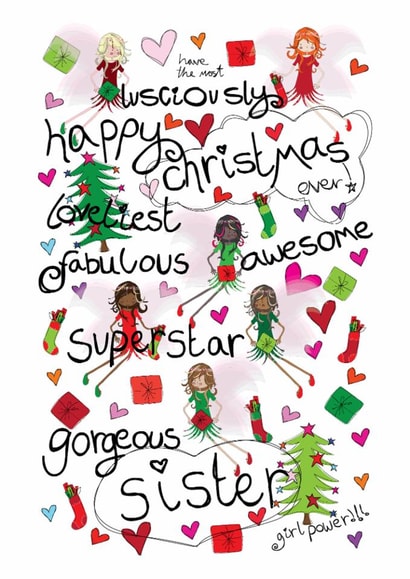 have
the most
lusciously
happy
christmas
ever!
loveliest
fabulous
awesome
superstar
gorgeous
sister
girl power!!!